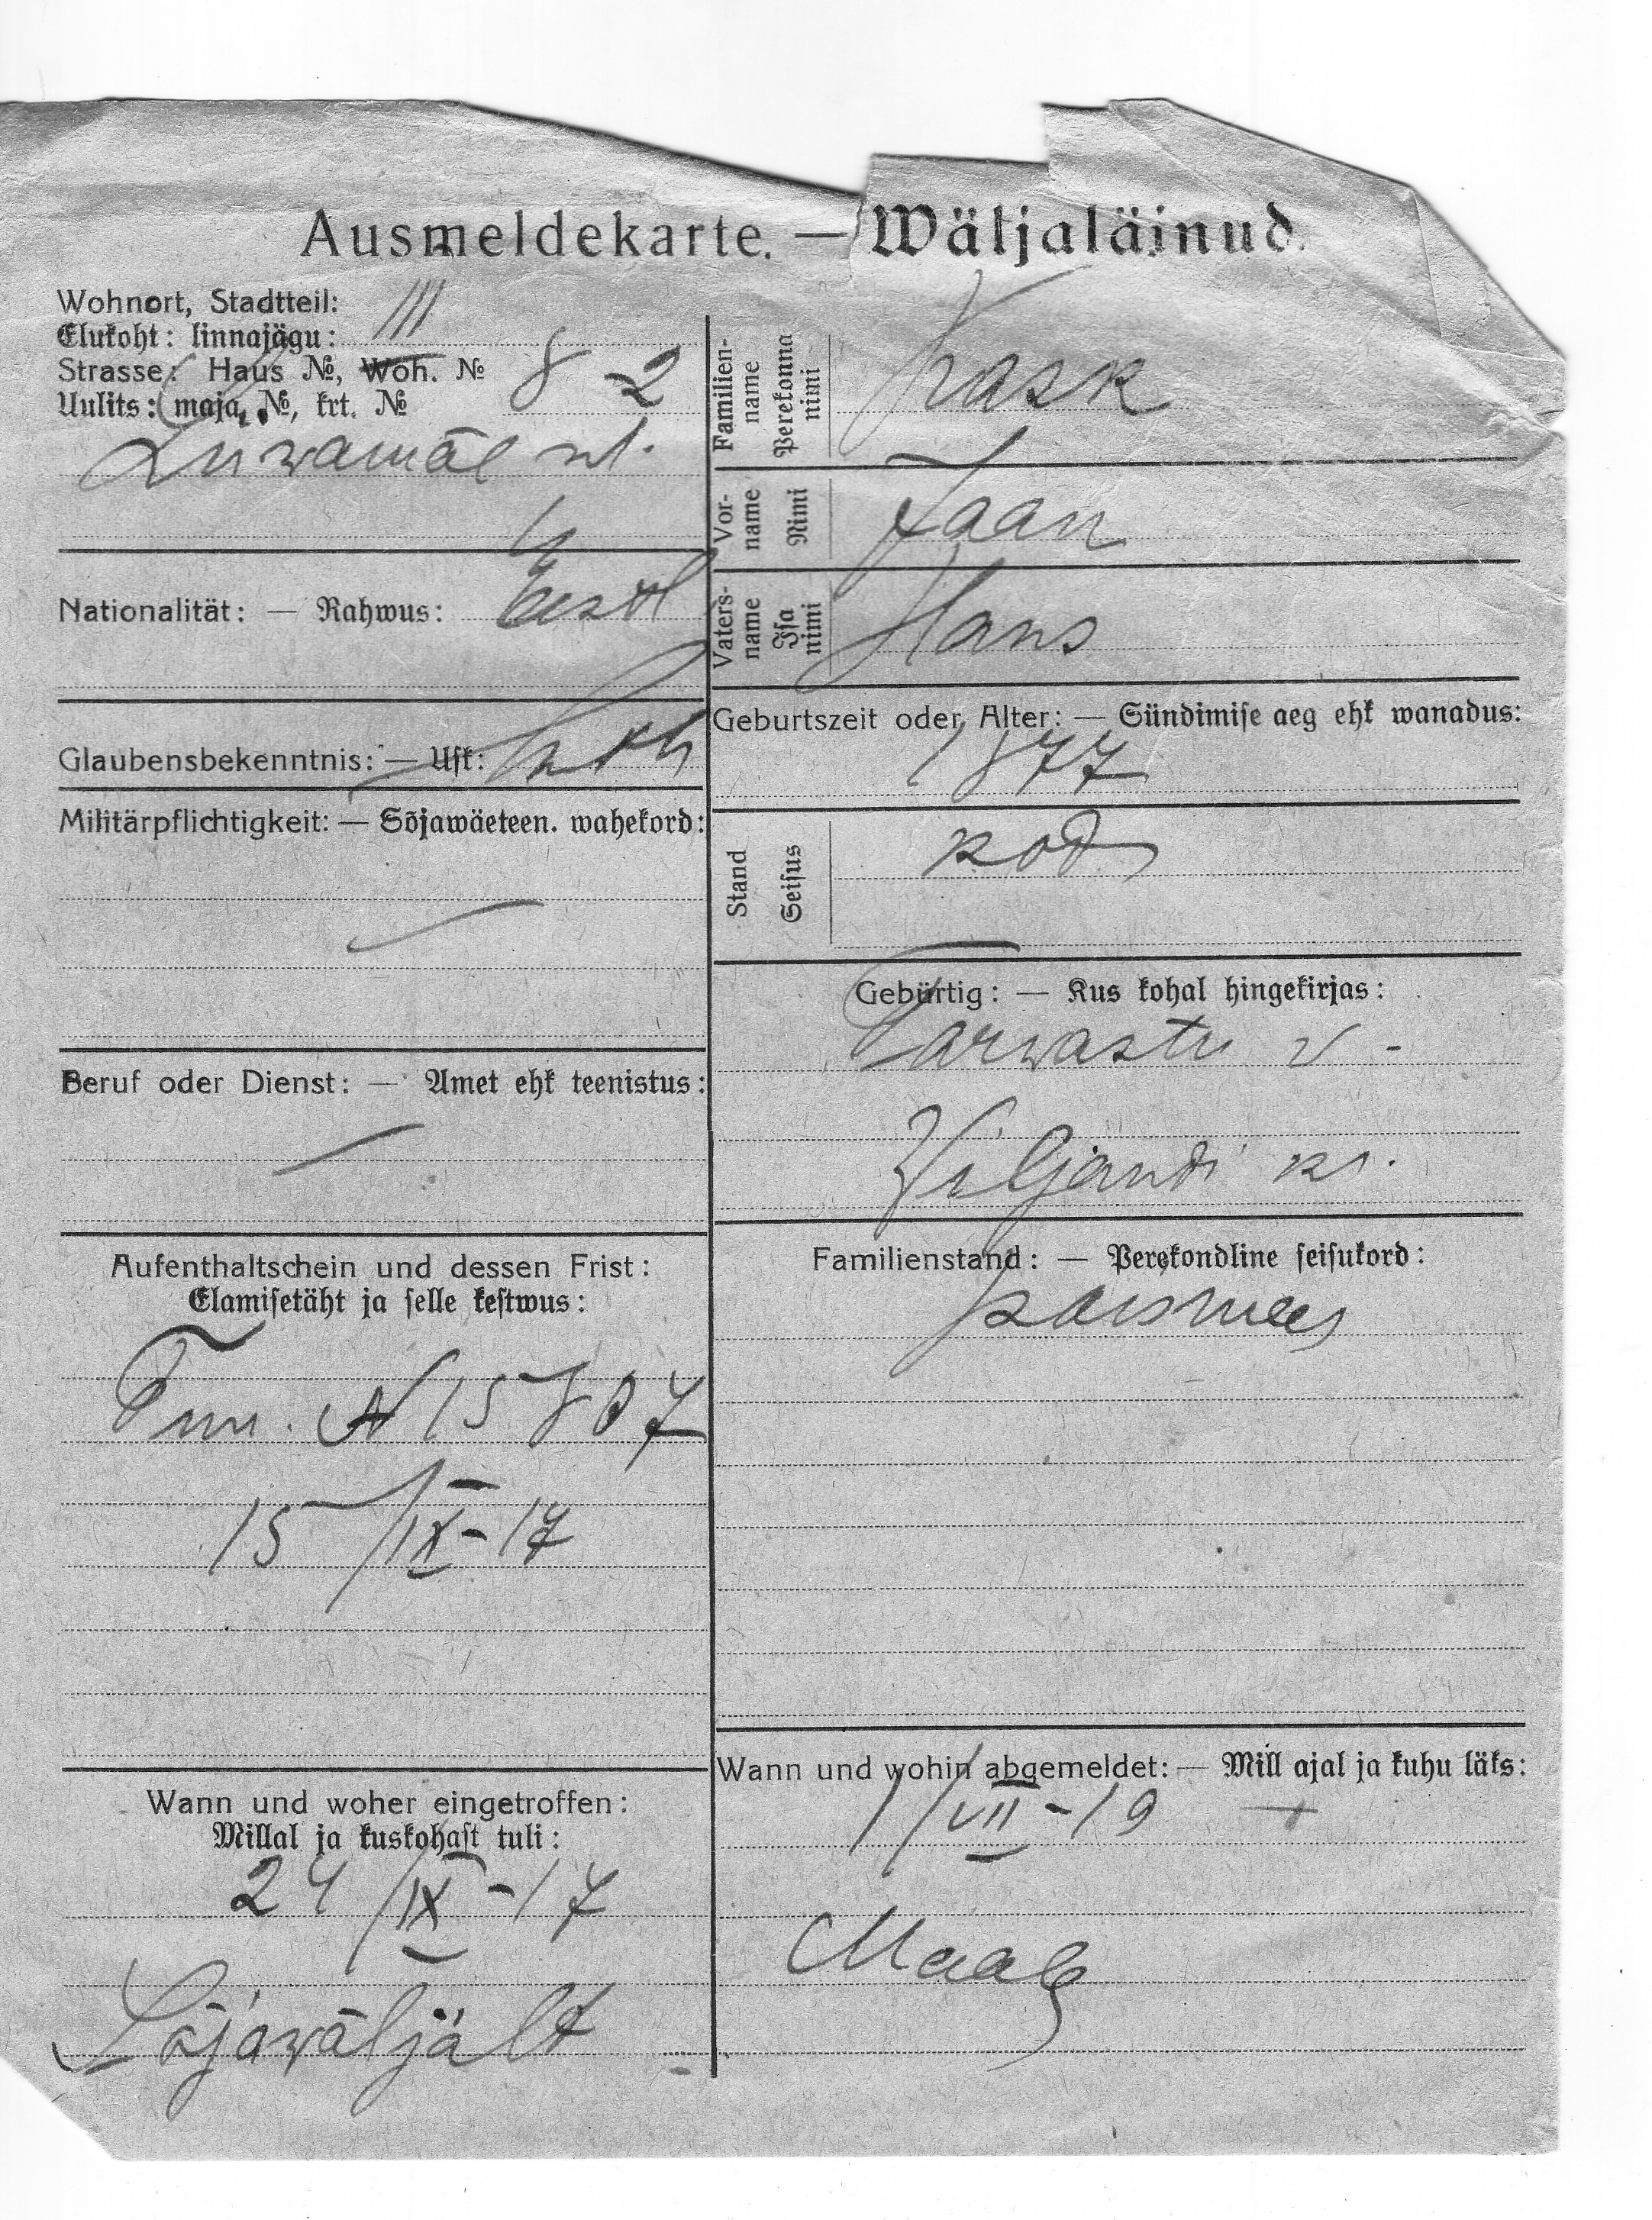 Ausmeldekarte. — Wäljaläinud.
Wohnort, Stadtteil:
Elukoht: linnajägu: III
Strasse: Haus №, Woh. №
Uulits: maja, №, krt. № 8 - 2
Liiwamäe ul.
Nationalität: — Rahwus: Eestl
Glaubensbekenntnis: — Usk: Luth
Militärpflichtigkeit: — Sõjawäeteen. wahekord:
Beruf oder Dienst: — Amet ehk teenistus:
Aufenthaltschein und dessen Frist:
Elamisetäht ja selle kestwus:
Tun. N 15807
15/IX-17
Wann und woher eingetroffen:
Millal ja kuskohast tuli:
24/IX-17
Sõjawäljält
Familien-name
Perekonna nimi
Kask
Vor-name
Nimi
Jaan
Vaters-name
Isa nimi
Hans
Geburtszeit oder Alter: — Sündimise aeg ehk wanadus:
1877
Stand
Seisus
kod
Gebürtig: — Kus kohal hingekirjas:
Tarwastu v -
Viljandi kr.
Familienstand: — Perekondline seisukord:
poismees
Wann und wohin abgemeldet: — Mill ajal ja kuhu läks:
1/VII-19 +
Maale